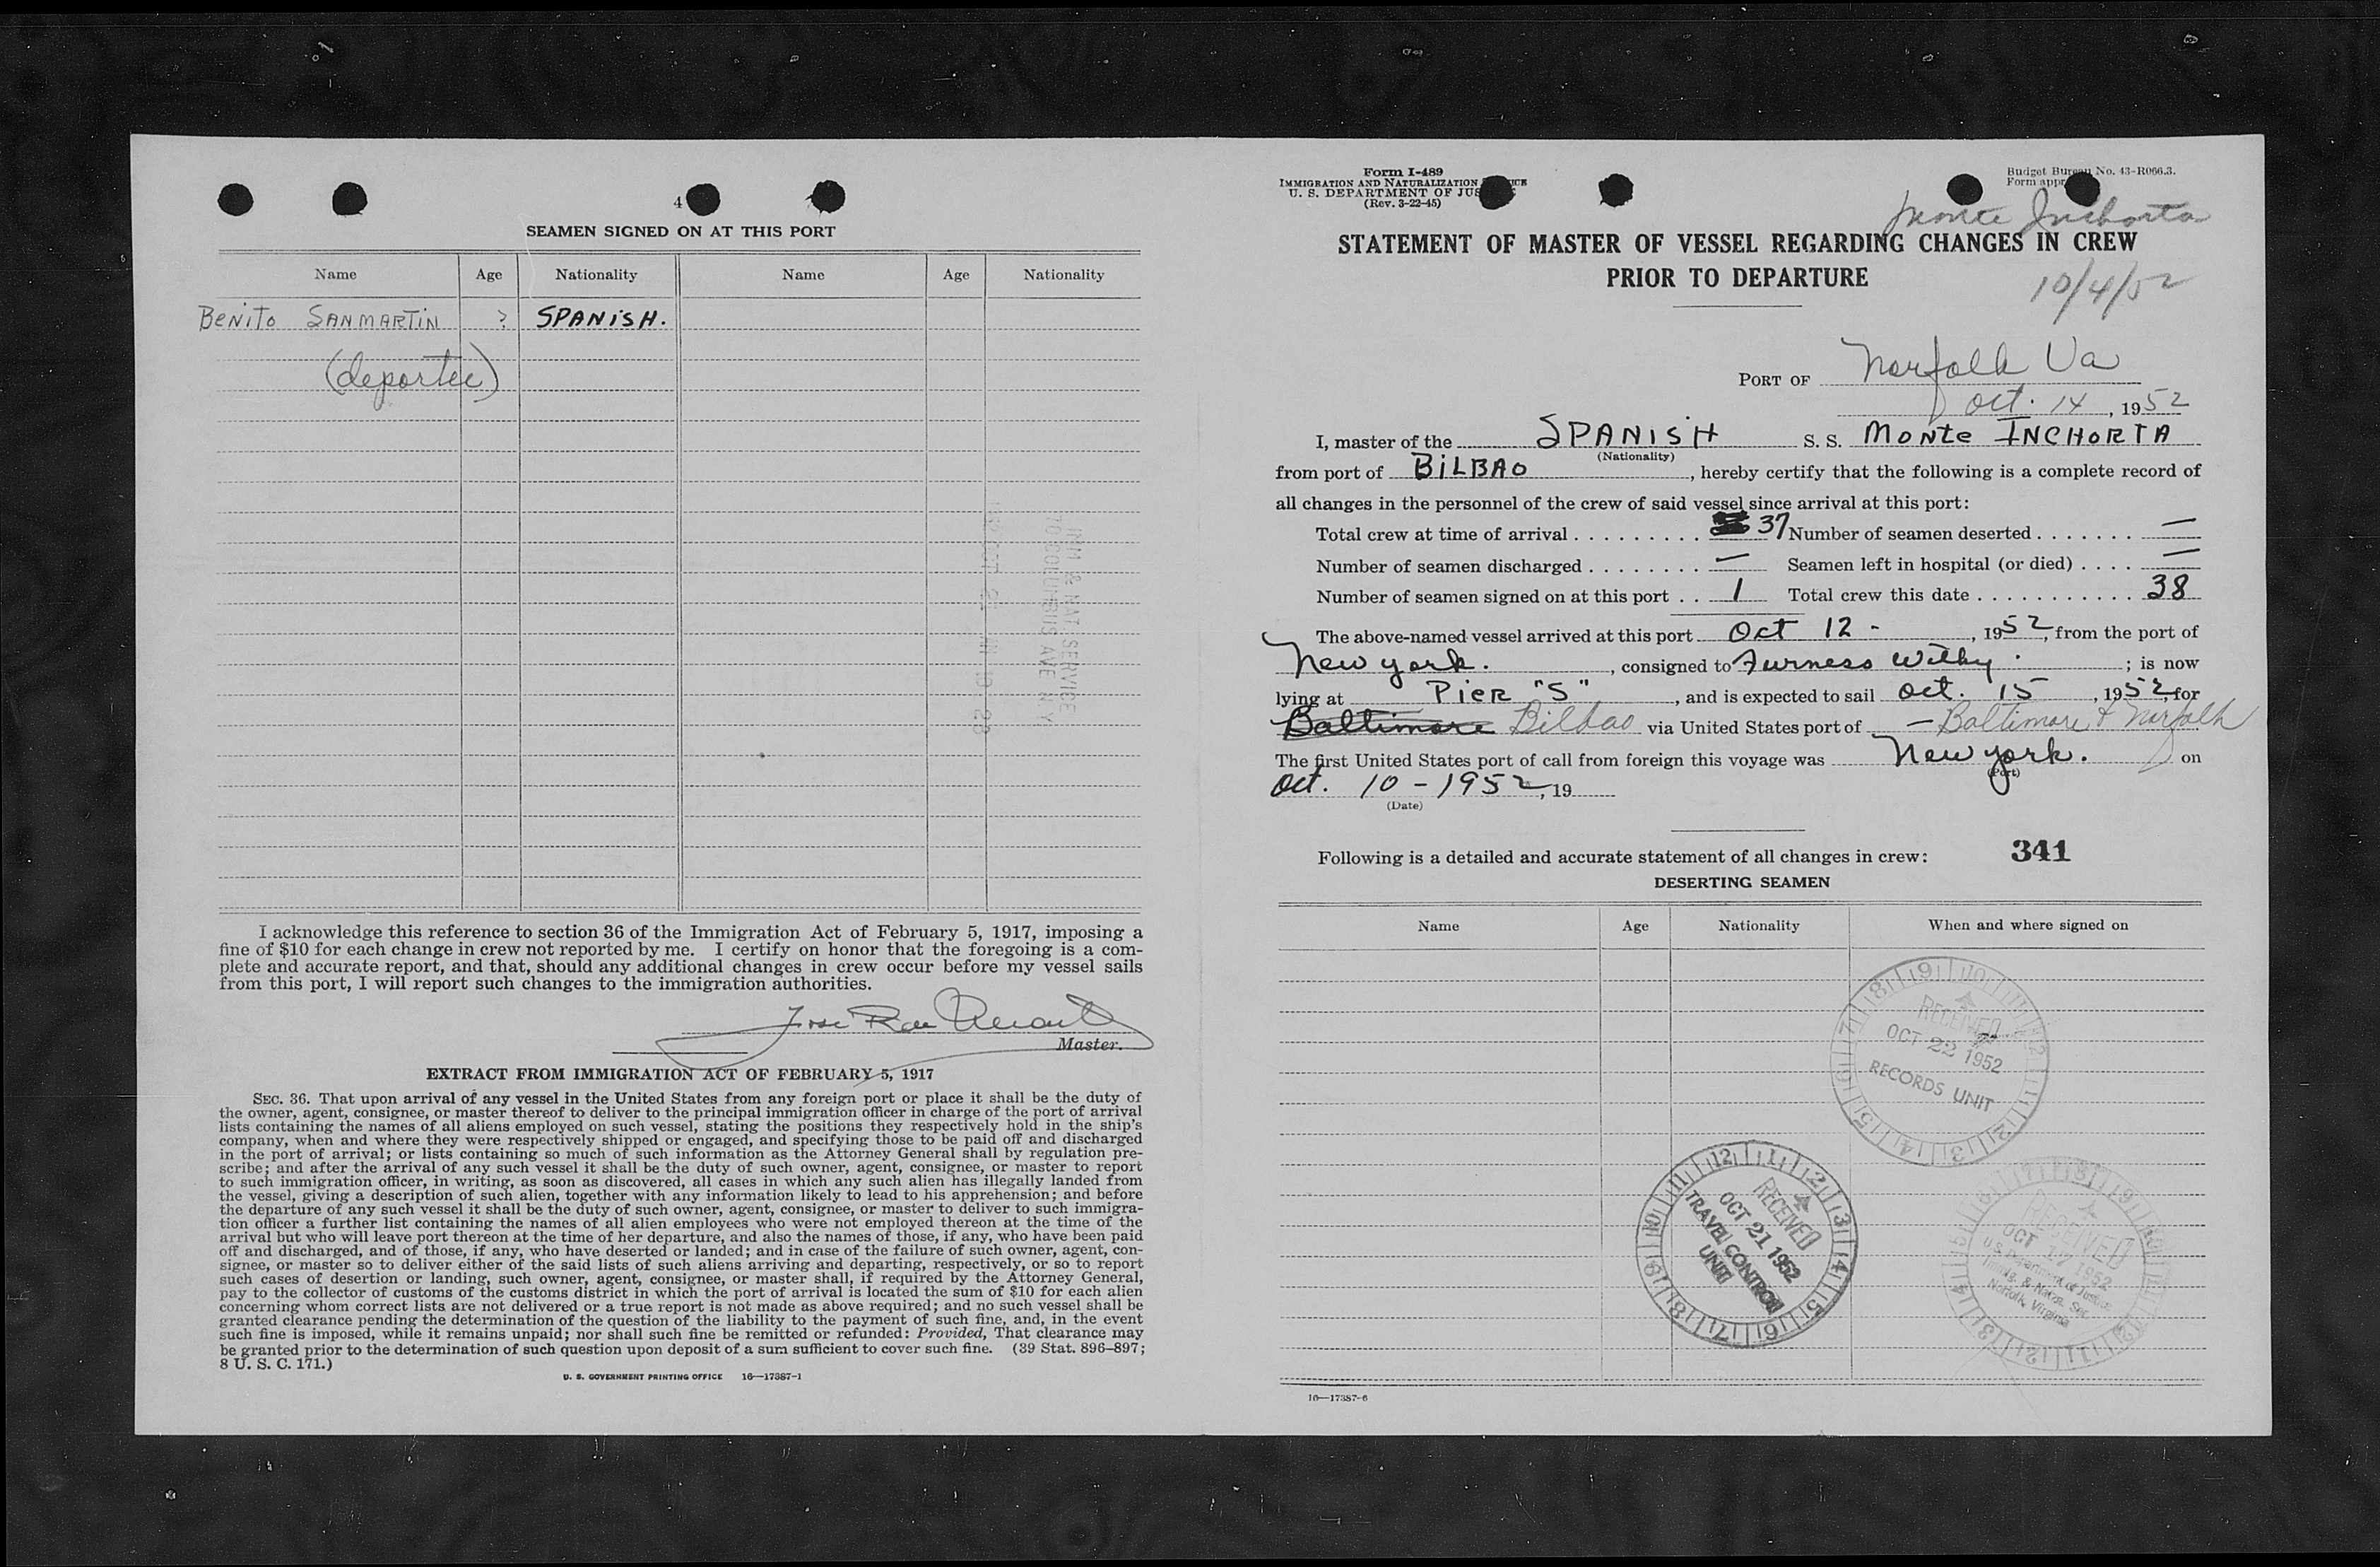 4
SEAMEN SIGNED ON AT THIS PORT
Name Age Nationality Name Age Nationality
BENITO SANMARTIN ? SPANISH.
(deportee)
IMM & NAT SERVICE
70 COLUMBUS AVE N Y
I acknowledge this reference to section 36 of the Immigration Act of February 5, 1917, imposing a
fine of $10 for each change in crew not reported by me. I certify on honor that the foregoing is a com-
plete and accurate report, and that, should any additional changes in crew occur before my vessel sails
from this port, I will report such changes to the immigration authorities.
Jose
Master.
EXTRACT FROM IMMIGRATION ACT OF FEBRUARY 5, 1917
SEC. 36. That upon arrival of any vessel in the United States from any foreign port or place it shall be the duty of
the owner, agent, consignee, or master thereof to deliver to the principal immigration officer in charge of the port of arrival
lists containing the names of all aliens employed on such vessel, stating the positions they respectively hold in the ship's
company, when and where they were respectively shipped or engaged, and specifying those to be paid off and discharged
in the port of arrival; or lists containing so much of such information as the Attorney General shall by regulation pre-
scribe; and after the arrival of any such vessel it shall be the duty of such owner, agent, consignee, or master to report
to such immigration officer, in writing, as soon as discovered, all cases in which any such alien has illegally landed from
the vessel, giving a description of such alien, together with any information likely to lead to his apprehension; and before
the departure of any such vessel it shall be the duty of such owner, agent, consignee, or master to deliver to such immigra-
tion officer a further list containing the names of all alien employees who were not employed thereon at the time of the
arrival but who will leave port thereon at the time of her departure, and also the names of those, if any, who have been paid
off and discharged, and of those, if any, who have deserted or landed; and in case of the failure of such owner, agent, con-
signee, or master so to deliver either of the said lists of such aliens arriving and departing, respectively, or so to report
such cases of desertion or landing, such owner, agent, consignee, or master shall, if required by the Attorney General,
pay to the collector of customs of the customs district in which the port of arrival is located the sum of $10 for each alien
concerning whom correct lists are not delivered or a true report is not made as above required; and no such vessel shall be
granted clearance pending the determination of the question of the liability to the payment of such fine, and, in the event
such fine is imposed, while it remains unpaid; nor shall such fine be remitted or refunded: Provided, That clearance may
be granted prior to the determination of such question upon deposit of a sum sufficient to cover such fine. (39 Stat. 896–897;
8 U. S. C. 171.)
U. S. GOVERNMENT PRINTING OFFICE 16—17387-1
Form I-489
IMMIGRATION AND NATURALIZATION
U. S. DEPARTMENT OF
(Rev. 3-22-45)
Budget Bureau No. 43-R066.3.
Form
Monte Inchorta
STATEMENT OF MASTER OF VESSEL REGARDING CHANGES IN CREW
PRIOR TO DEPARTURE
10/4/52
PORT OF Norfolk Va
Oct. 14, 1952
I, master of the SPANISH S. S. MONTE INCHORTA
(Nationality)
from port of BILBAO, hereby certify that the following is a complete record of
all changes in the personnel of the crew of said vessel since arrival at this port:
Total crew at time of arrival . . . . . . . . . 37 Number of seamen deserted . . . . . . . —
Number of seamen discharged . . . . . . . . — Seamen left in hospital (or died) . . . . —
Number of seamen signed on at this port . . 1 Total crew this date . . . . . . . . . . . 38
The above-named vessel arrived at this port Oct 12 -, 1952, from the port of
New york., consigned to Furness Withy.; is now
lying at Pier "S", and is expected to sail Oct. 15, 1952, for
Baltimore Bilbao via United States port of — Baltimore & Norfolk
The first United States port of call from foreign this voyage was New york. on
(Port)
Oct. 10 - 1952, 19
(Date)
Following is a detailed and accurate statement of all changes in crew: 341
DESERTING SEAMEN
Name Age Nationality When and where signed on
RECEIVED
OCT 22 1952
RECORDS UNIT
RECEIVED
OCT 21 1952
TRAVEL CONTROL
UNIT
RECEIVED
OCT 17 1952
U.S. Department of Justice
Immig. & Natz. Ser.
Norfolk, Virginia
16—17387-6